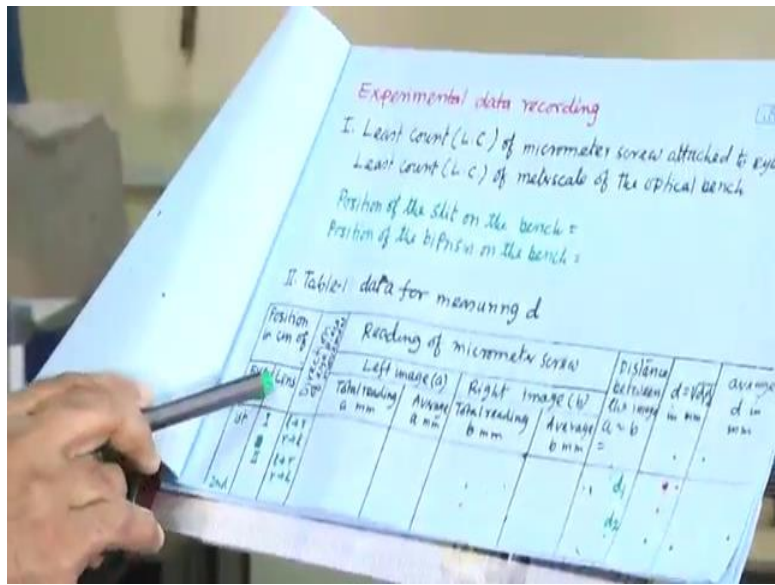 Experimental data recording
I. Least count (L.C) of micrometer screw attached to eye
Least count (L.C) of metrescale of the optical bench
Position of the slit on the bench =
Position of the biprism on the bench =
II. Table-1 data for measuring d
Position
in cm of
Direction
Reading of micrometer screw
Distance
between
the image
a ~ b
=
d=√d1d2
in mm
average
d in
mm
Lens
Left image (a)
Right image (b)
Total reading
a mm
Average
a mm
Total reading
b mm
Average
b mm
1st
I
l→r
r→l
l→r
r→l
d1
2nd
d2